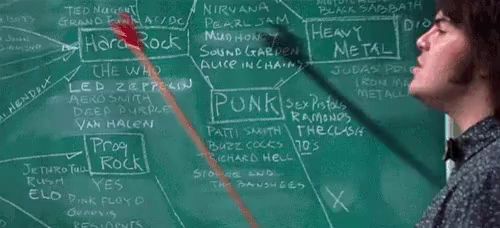 TED NUGENT
GRAND AC/DC
Hard Rock
THE WHO
LED ZEPPELIN
AEROSMITH
DEEP PURPLE
VAN HALEN
HENDRIX
Prog
Rock
JETHRO TULL
RUSH
ELO
YES
PINK FLOYD
Genesis
NIRVANA
PEARL JAM
MUD HONEY
SOUND GARDEN
ALICE IN CHAINS
PUNK
PATTI SMITH
BUZZ COCKS
RICHARD HELL
SIOUXSIE AND
THE BANSHEES
SEX PISTOLS
RAMONES
THE CLASH
70's
X
BLACK SABBATH
HEAVY
METAL
DIO
JUDAS
IRON
METALLIC